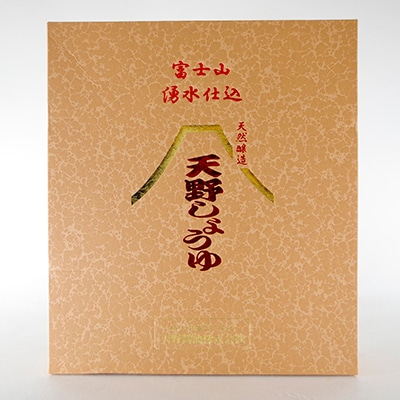 富士山
湧水仕込
天然醸造
天野しょうゆ